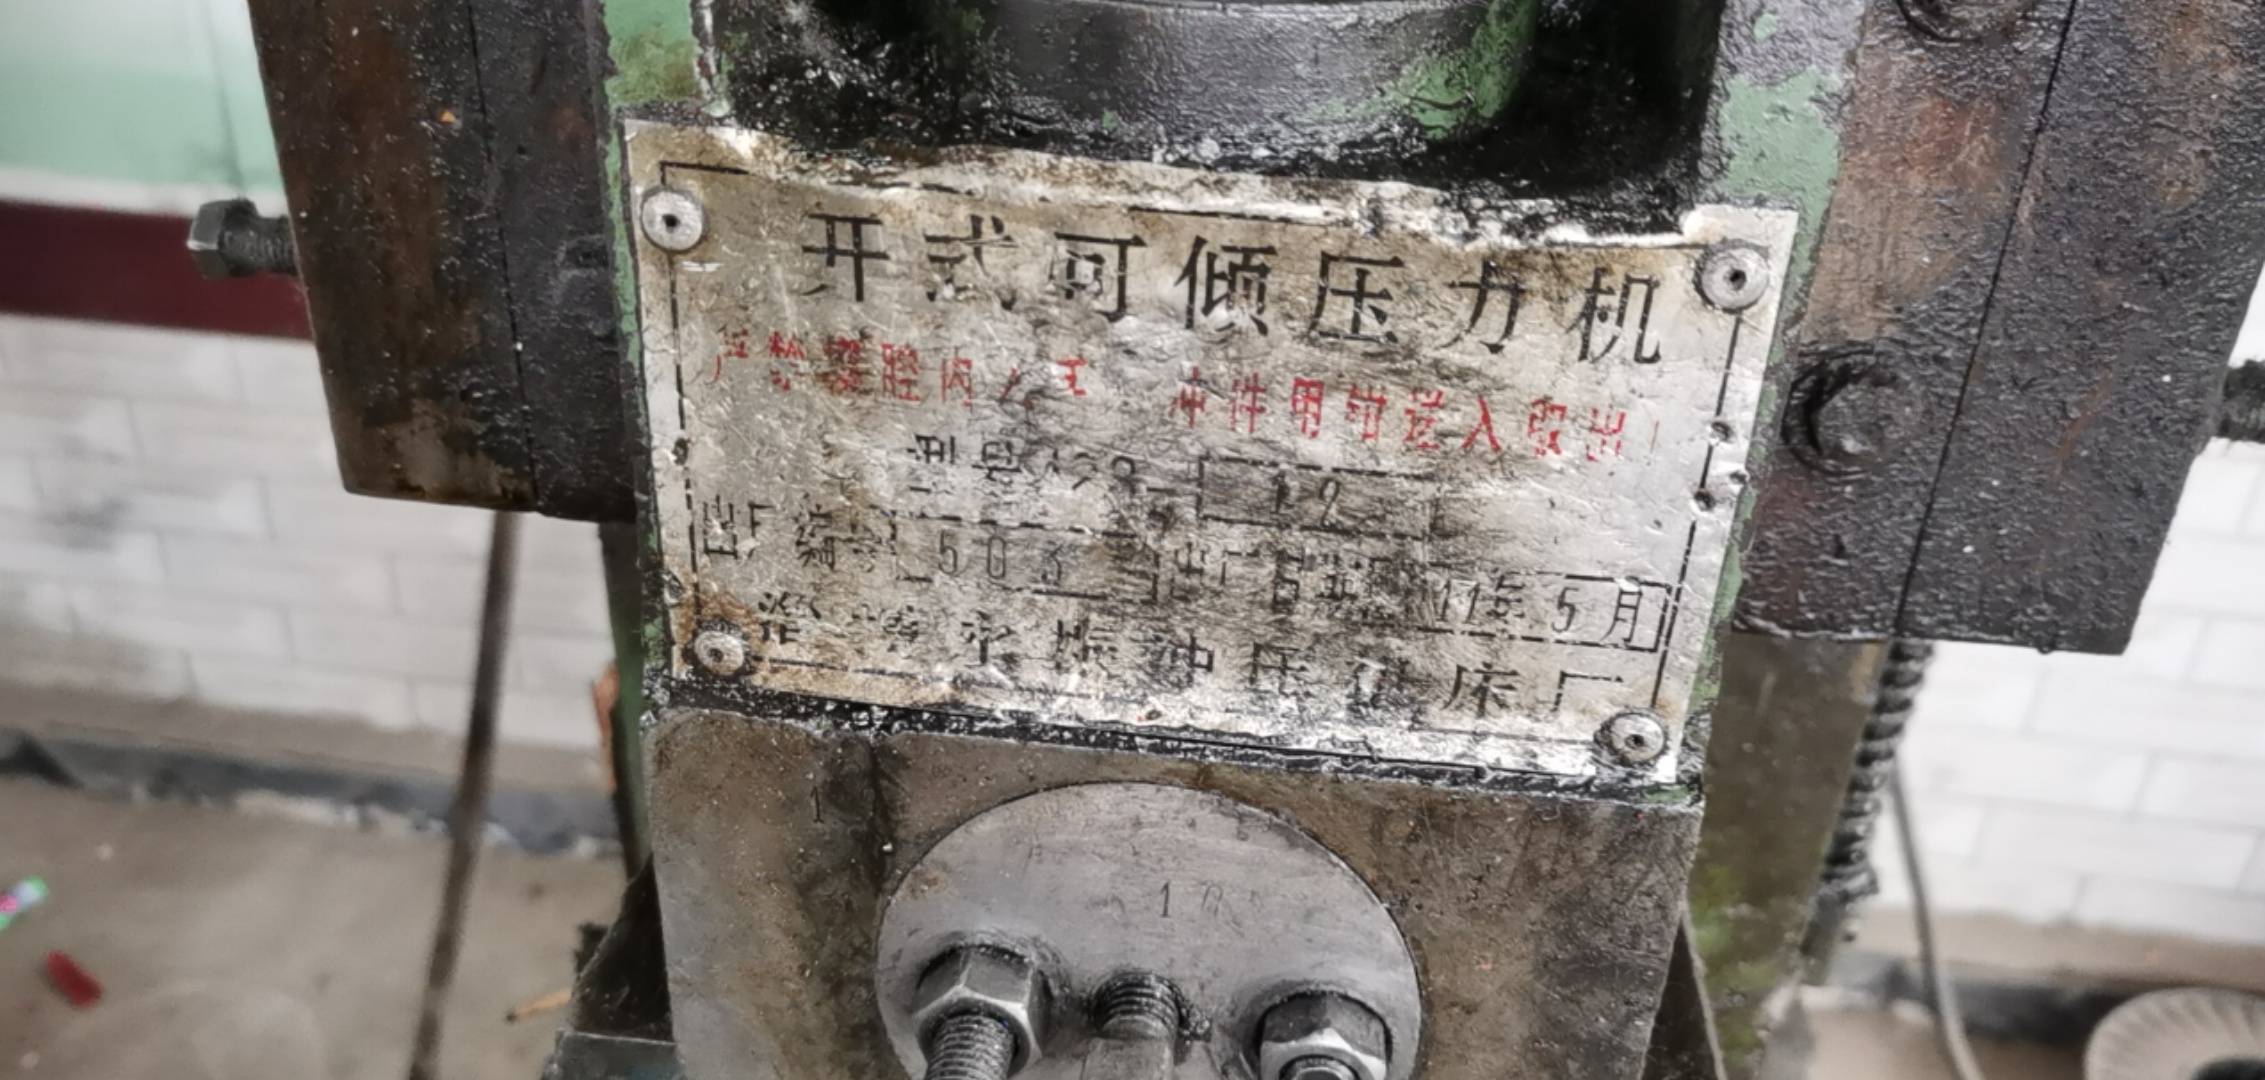 开式可倾压力机
严禁模腔内入手 冲件用钳送入取出!
型号J23-12
出厂编号 503 出厂日期 11年5月
永振冲压机床厂
1
10